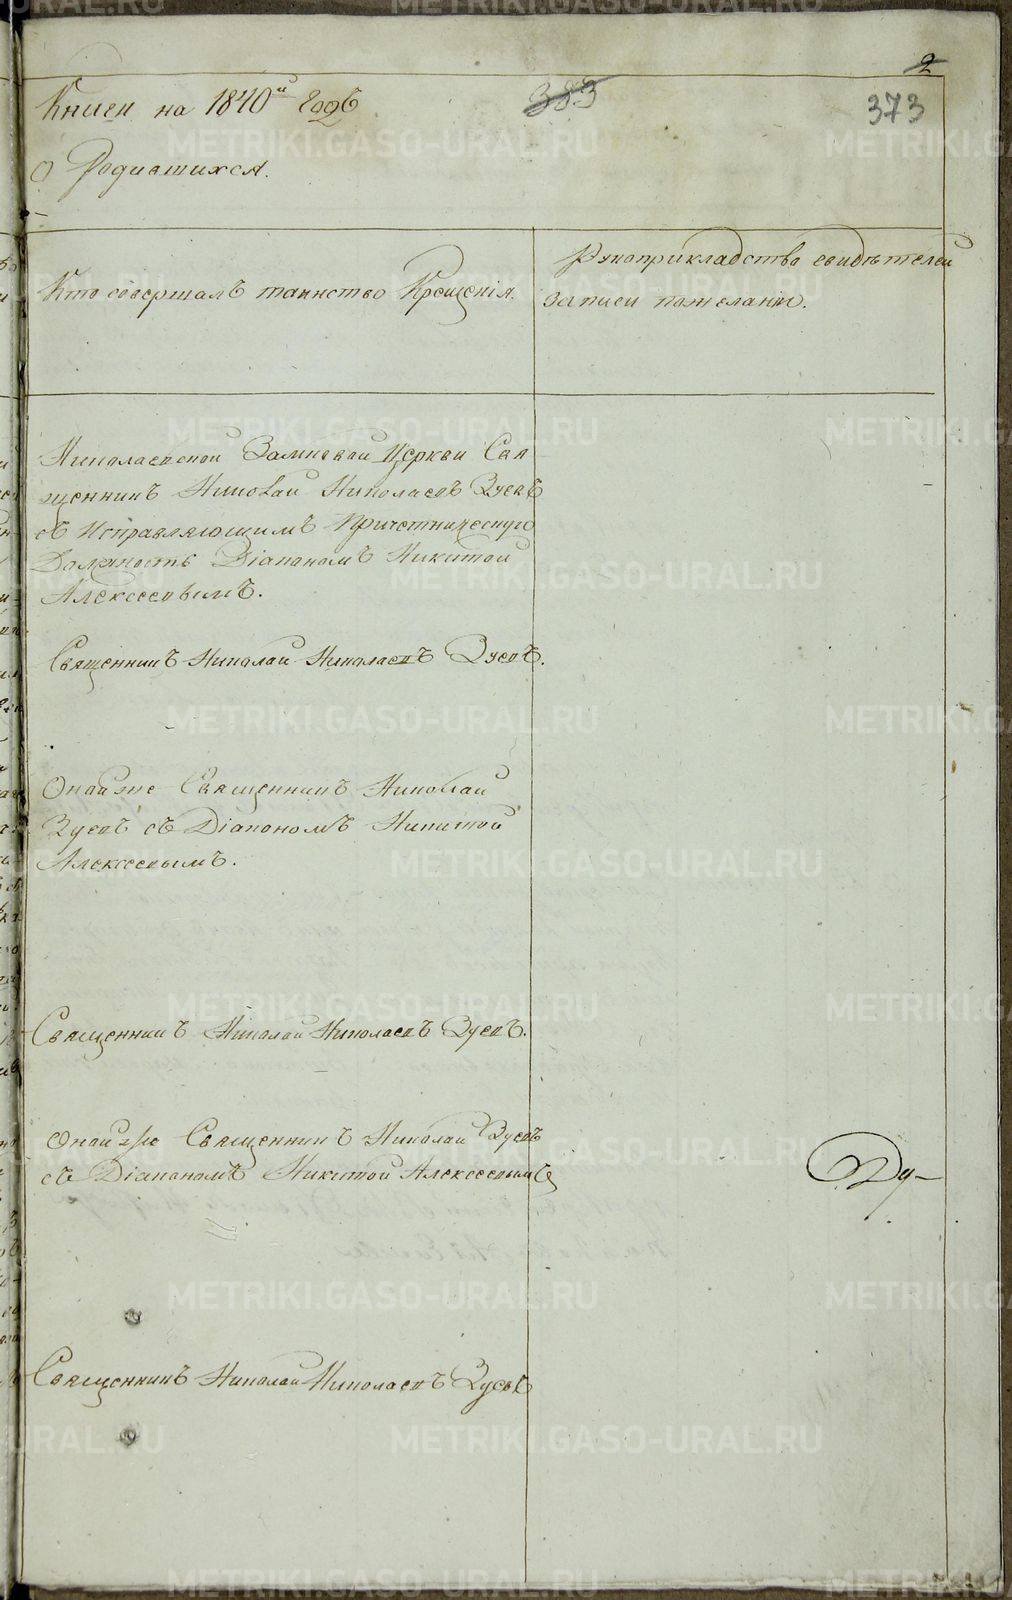 2
Книги на 1840й годъ
383
373
О Родившихся.
Кто совершалъ таинство Крещенія.
Рукоприкладство свидѣтелей
записи по желанію.
Николаевской Церкви Свя
щенникъ Николай Николаевъ Зуевъ
съ исправляющимъ Причетническую
Должность Діакономъ Никитой
Алексеевымъ.
Священникъ Николай Николаевъ Зуевъ.
Онай же Священникъ Николай
Зуевъ съ Діакономъ Никитой
Алексеевымъ.
Священникъ Николай Николаевъ Зуевъ.
Онай же Священникъ Николай Зуевъ
съ Діакономъ Никитой Алексеевымъ
Ду-
Священникъ Николай Николаевъ Зуевъ
METRIKI.GASO-URAL.RU